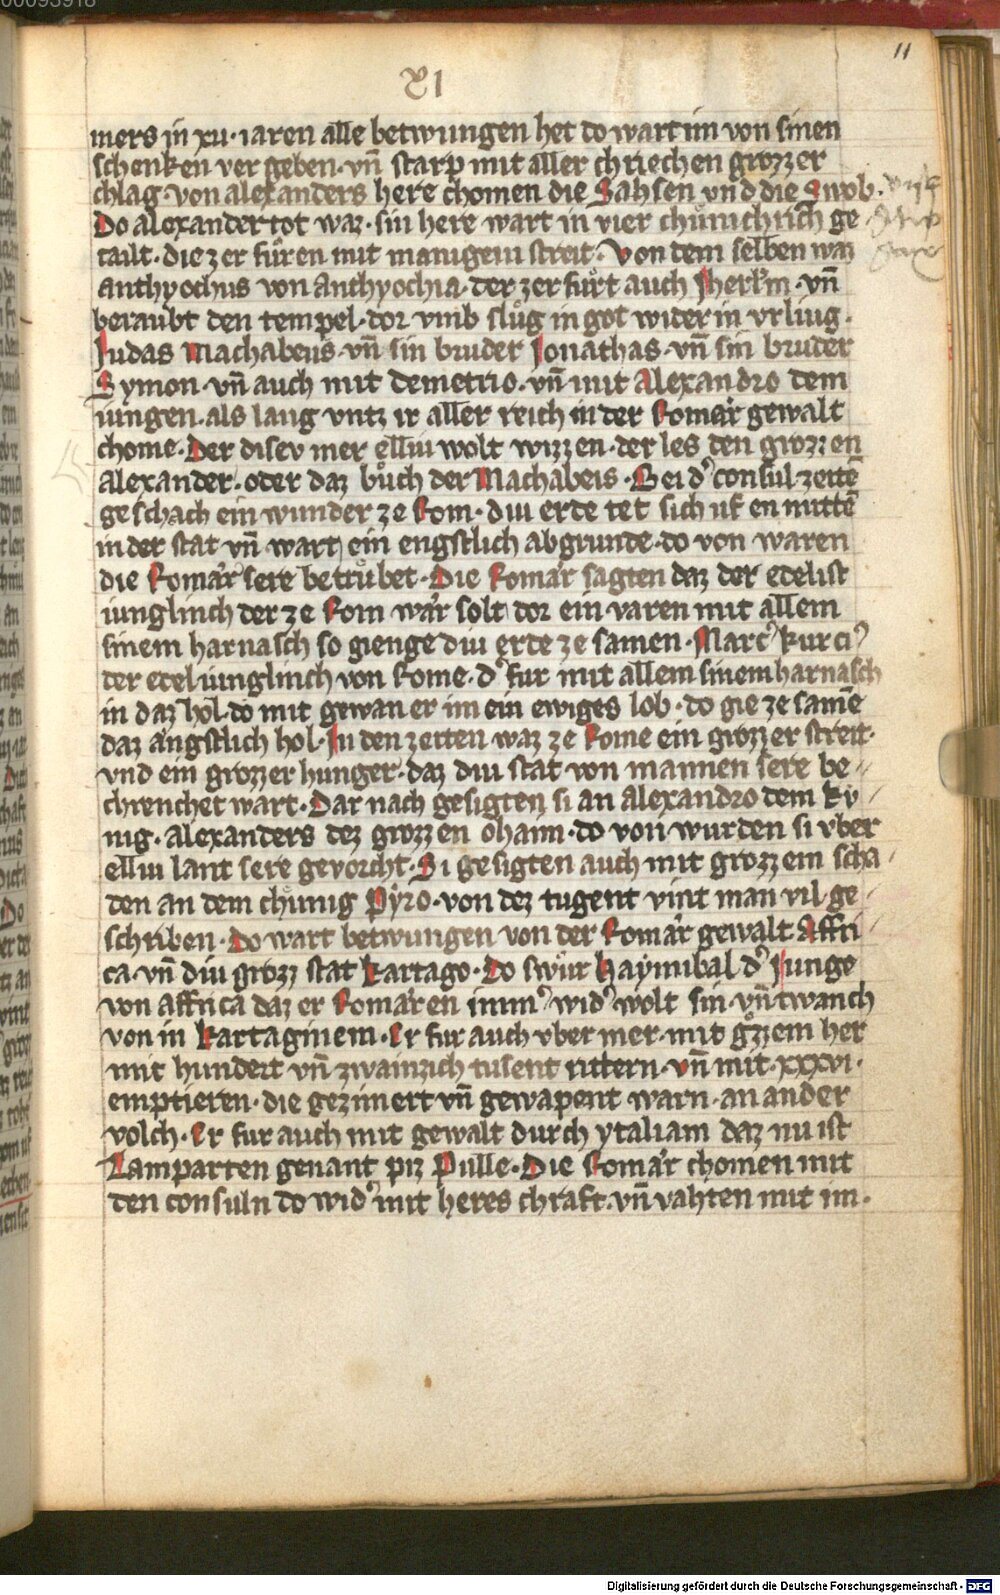 00093918
11
XI
mers in xii· iaren alle betwungen het do wart im von sinen
schenken ver geben· vn̄ starp mit aller chriechen grozzer
chlag· von alexanders here chomen die Sahsen vnd die Swob·
Do alexander tot waz· sin here wart in vier chůnichrich ge
tailt· die zer fůren mit manigem streit· Von dem selben waz
anthyochus von Anthyochia· der zer fůrt auch Jherl'm· vn̄
beraubt den tempel· dor vmb slůg in got wider in vrliug·
Judas Machabeus· vn̄ sin bruder Jonathas· vn̄ sin bruder
Symon· vn̄ auch mit demetrio· vn̄ mit Alexandro dem
iungen· als lang vntz ir aller reich in der Romär gewalt
chome· Der disev mer elliu wolt wizzen· der les den grozzen
Alexander· oder daz bůch der Machabeis· Bei d' consul zeitē
geschach ein wunder ze Rom· diu erde tet sich uf en mittē
in der stat vn̄ wart ein engstlich abgrunde· do von waren
die Romär sere betrůbet· Die Romär sagten daz der edelist
iunglinch der ze Rom wär solt dor ein varen mit allem
sinem harnasch so gienge diu erde ze samen· Marc' kurci'
der edel iunglinch von Rome· d' fur mit allem sinem harnasch
in daz hol· do mit gewan er im ein ewiges lob· do gie ze samē
daz ängstlich hol· In den zeiten waz ze Rome ein grozzer streit·
vnd ein grozzer hunger· daz diu stat von mannen sere be
chrenchet wart· Dar nach gesigten si an Alexandro dem ky
nig· Alexanders dez grozzen öhaim· do von wurden si vber
elliu lant sere gevorcht· Si gesigten auch mit grozzem scha
den an dem chůnig Pyro· von dez tugent vint man vil ge
schriben· Do wart betwungen von der Romär gewalt Affri
ca· vn̄ diu grozz stat Kartago· Do swůr Haynnibal d' Junge
von Affrica daz er Romären imm' wid' wolt sin· vn̄ twanch
von in Kartaginem· Er fur auch vber mer· mit g°zzem her
mit hundert vn̄ zwainzich tusent rittern· vn̄ mit· XXXVI·
emptieren· die gezimert vn̄ gewapent warn· an ander
volch· Er fur auch mit gewalt durch ytaliam daz nu ist
Lamparten genant piz Pulle· Die Romär chomen mit
den consuln do wid' mit heres chraft· vn̄ vahten mit im·
Digitalisierung gefördert durch die Deutsche Forschungsgemeinschaft - DFG